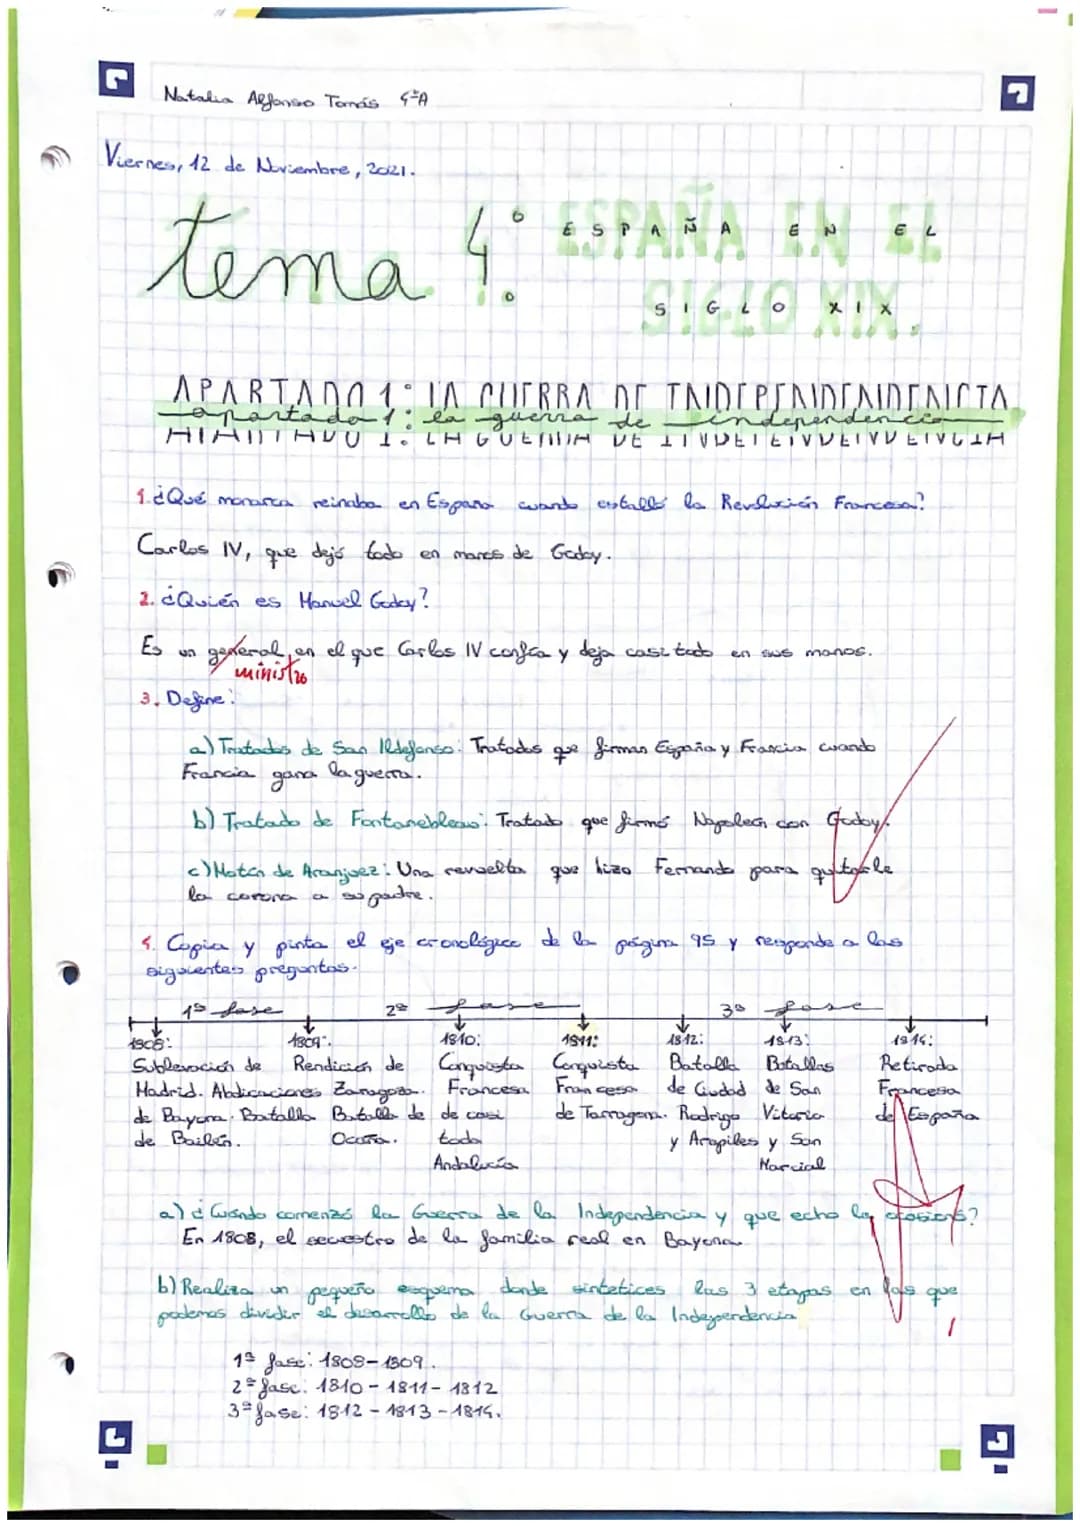 Natalia Alfonso Tomás 4ºA
Viernes, 12 de Noviembre, 2021.
tema 4: ESPAÑA EN EL
SIGLO XIX.
APARTADO 1: LA GUERRA DE INDEPENDENDENCIA
apartado 1: la guerra de independencia
1. ¿Qué monarca reinaba en España cuando estalló la Revolución Francesa?
Carlos IV, que dejó todo en manos de Godoy.
2. ¿Quién es Manuel Godoy?
Es un general, en el que Carlos IV confía y deja casi todo en sus manos.
ministro
3. Define:
a) Tratados de San Ildefonso: Tratados que firman España y Francia cuando
Francia gana la guerra.
b) Tratado de Fontanebleau: Tratado que firmó Napoleón con Godoy.
c) Motín de Aranjuez: Una revuelta que hizo Fernando para quitarle
la corona a su padre.
4. Copia y pinta el eje cronológico de la página 95 y responde a las
siguientes preguntas.
1ª fase 2ª fase 3ª fase
1808: 1809: 1810: 1811: 1812: 1813: 1814:
Sublevación de Rendición de Conquista Conquista Batalla Batallas Retirada
Madrid. Abdicaciones Zaragoza. Francesa Francesa de Ciudad de San Francesa
de Bayona. Batalla Batalla de de casi de Tarragona. Rodrigo Vitoria de España
de Bailén. Ocaña. toda y Arapiles y San
Andalucía Marcial
a) ¿Cuándo comenzó la Guerra de la Independencia y que echo la ocasionó?
En 1808, el secuestro de la familia real en Bayona.
b) Realiza un pequeño esquema donde sintetices las 3 etapas en las que
podemos dividir el desarrollo de la Guerra de la Independencia
1ª fase: 1808-1809.
2ª fase: 1810 - 1811 - 1812
3ª fase: 1812 - 1813 - 1814.